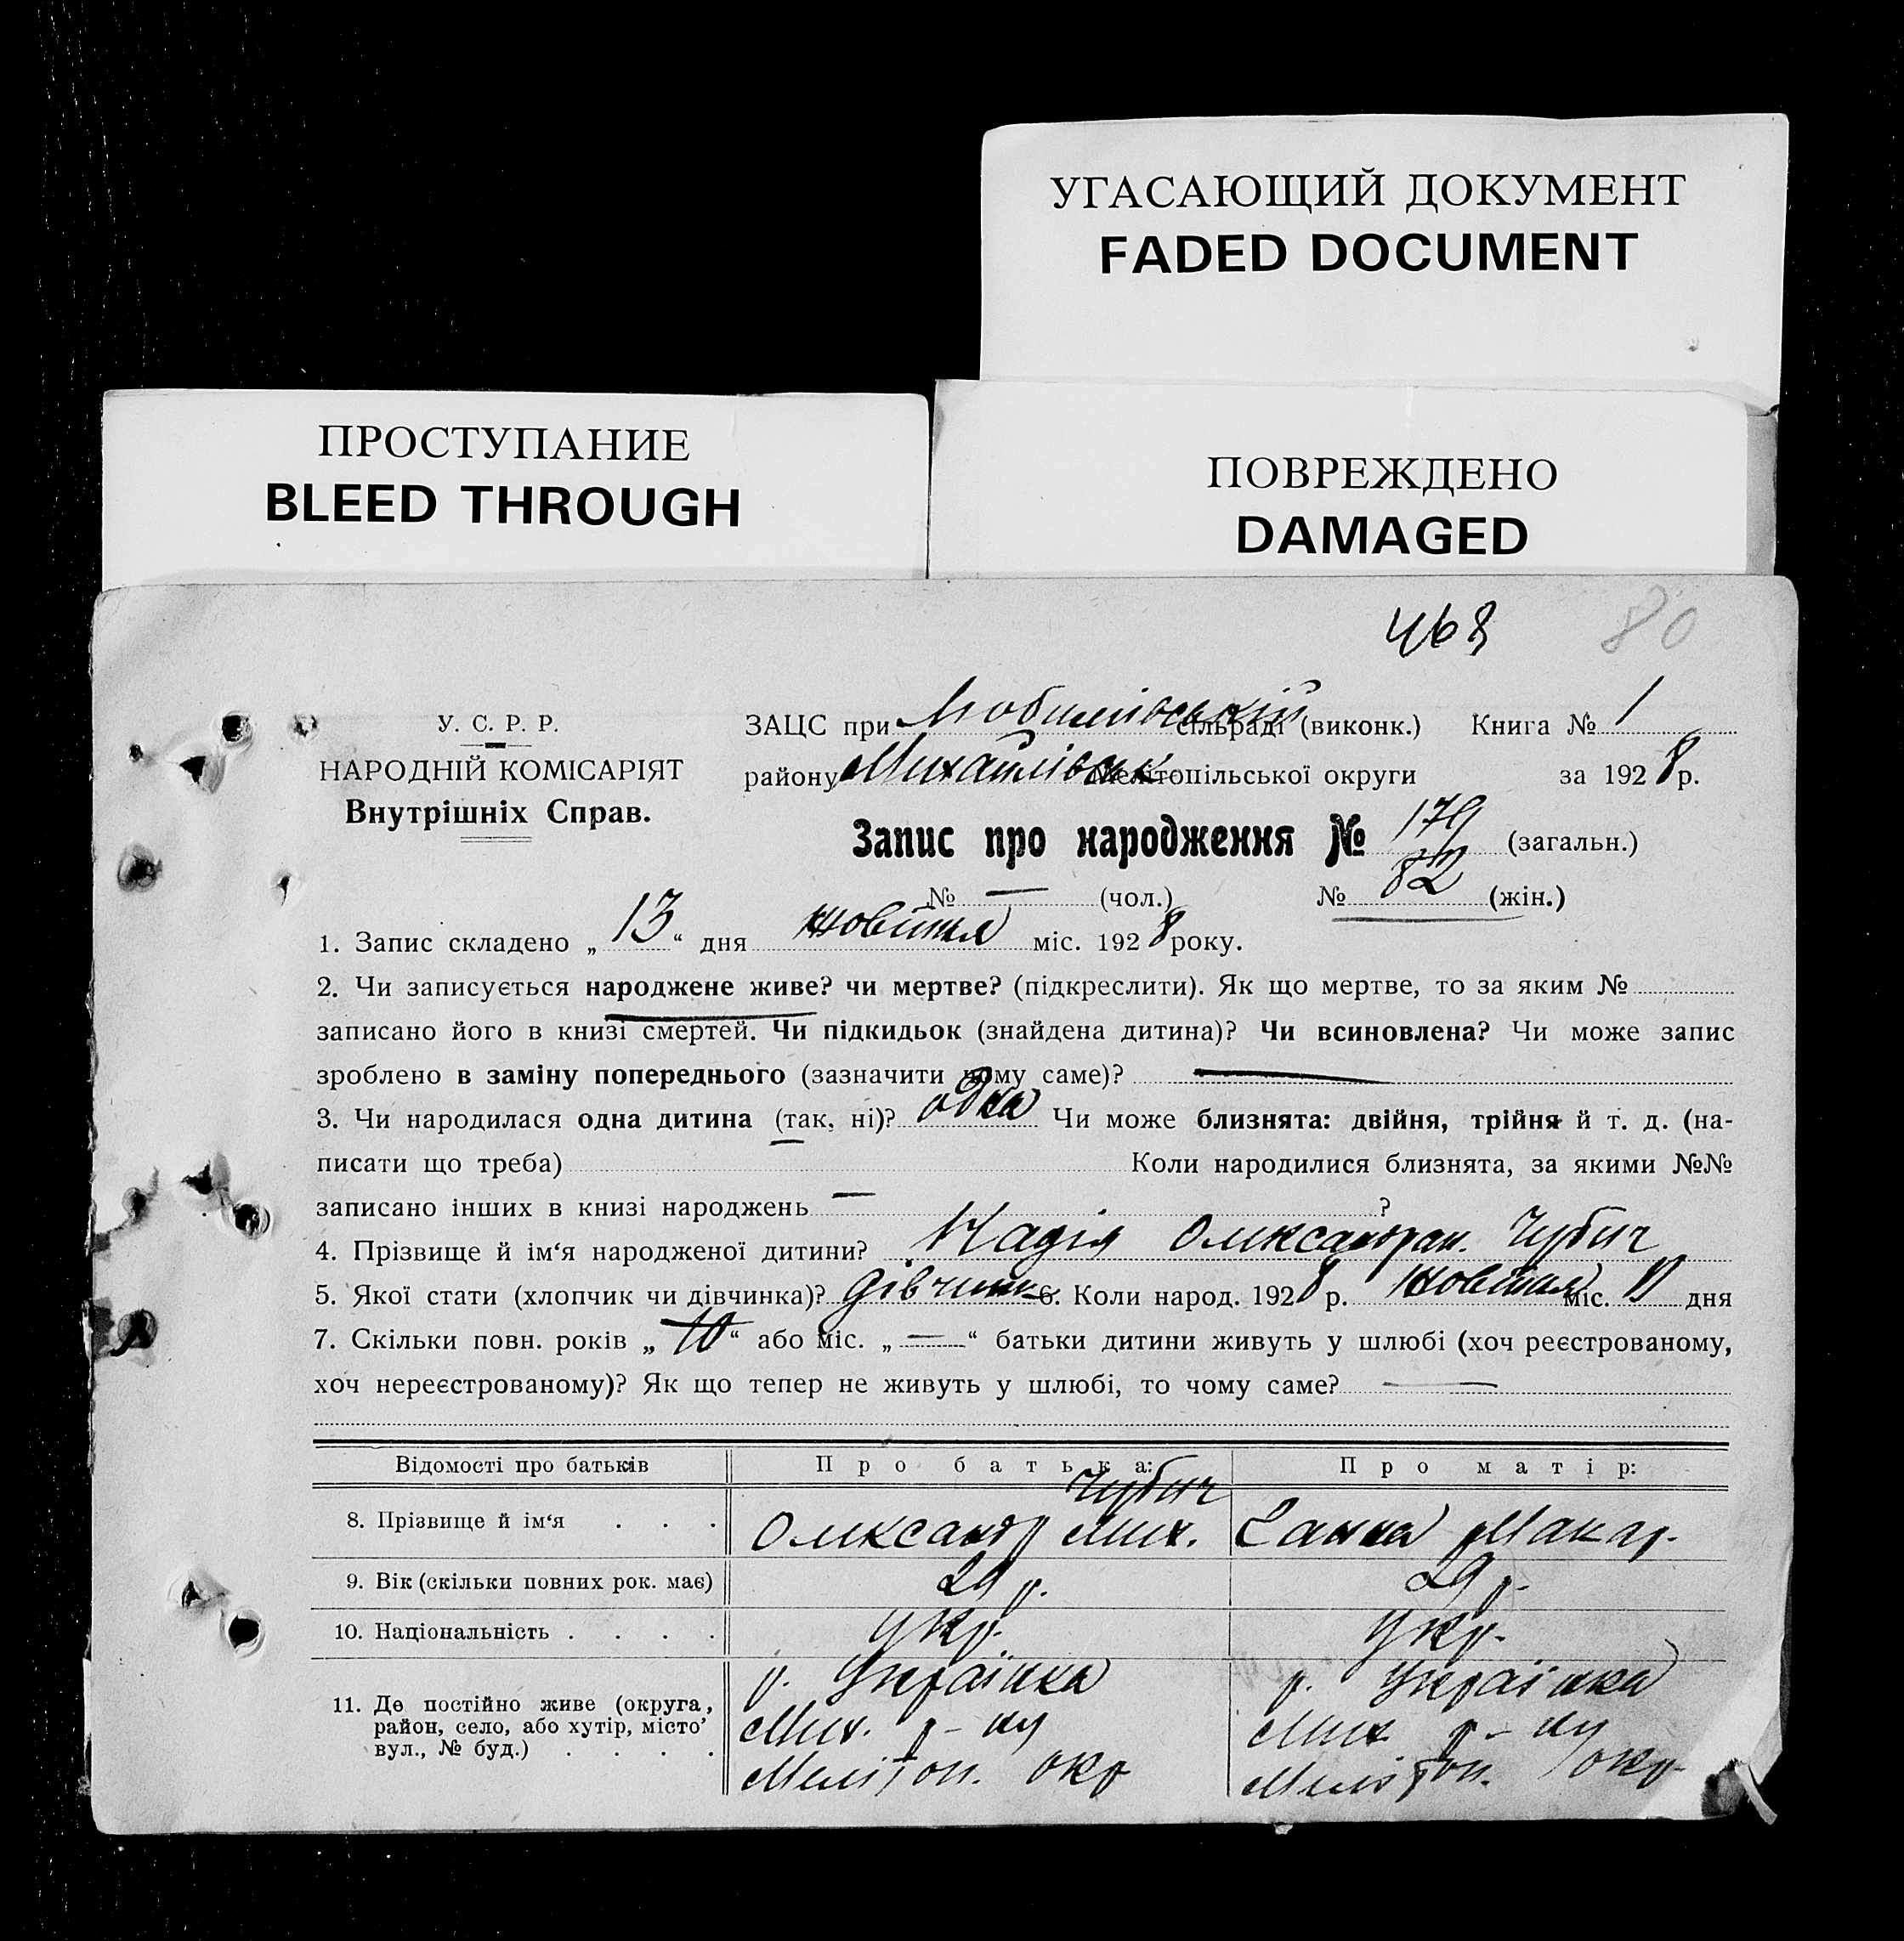 УГАСАЮЩИЙ ДОКУМЕНТ
FADED DOCUMENT
ПРОСТУПАНИЕ
BLEED THROUGH
ПОВРЕЖДЕНО
DAMAGED
468 80
У. С. Р. Р.
НАРОДНІЙ КОМІСАРІЯТ
Внутрішніх Справ.
ЗАЦС при сільраді (виконк.) Книга № 1
району Михайлівськ. Мелітопільської округи за 1928 р.
Запис про народження № 179 (загальн.)
№ — (чол.) № 82 (жін.)
1. Запис складено „13“ дня жовтня міс. 1928 року.
2. Чи записується народжене живе? чи мертве? (підкреслити). Як що мертве, то за яким №
записано його в книзі смертей. Чи підкидьок (знайдена дитина)? Чи всиновлена? Чи може запис
зроблено в заміну попереднього (зазначити чому саме)? —
3. Чи народилася одна дитина (так, ні)? одна Чи може близнята: двійня, трійня й т. д. (на-
писати що треба) Коли народилися близнята, за якими №№
записано інших в книзі народжень — ?
4. Прізвище й ім‘я народженої дитини? Надія Олександрів. Чубич
5. Якої стати (хлопчик чи дівчинка)? дівчинк 6. Коли народ. 1928 р. жовтня міс. дня
7. Скільки повн. років „10“ або міс. „—“ батьки дитини живуть у шлюбі (хоч реєстрованому,
хоч нереєстрованому)? Як що тепер не живуть у шлюбі, то чому саме? —
Відомості про батьків Про батька: Про матір:
Чубич
8. Прізвище й ім‘я . . . Олександр Мих. Ганна Макар.
9. Вік (скільки повних рок. має) 29 р. 29 р.
10. Національність . . . . Укр. Укр.
11. Де постійно живе (округа, район, село, або хутір, місто’ вул., № буд.) . . . .
р. Українка
Мих. р-ну
Мелітоп. окр
р. Українка
Мих. р-ну
Мелітоп. окр.